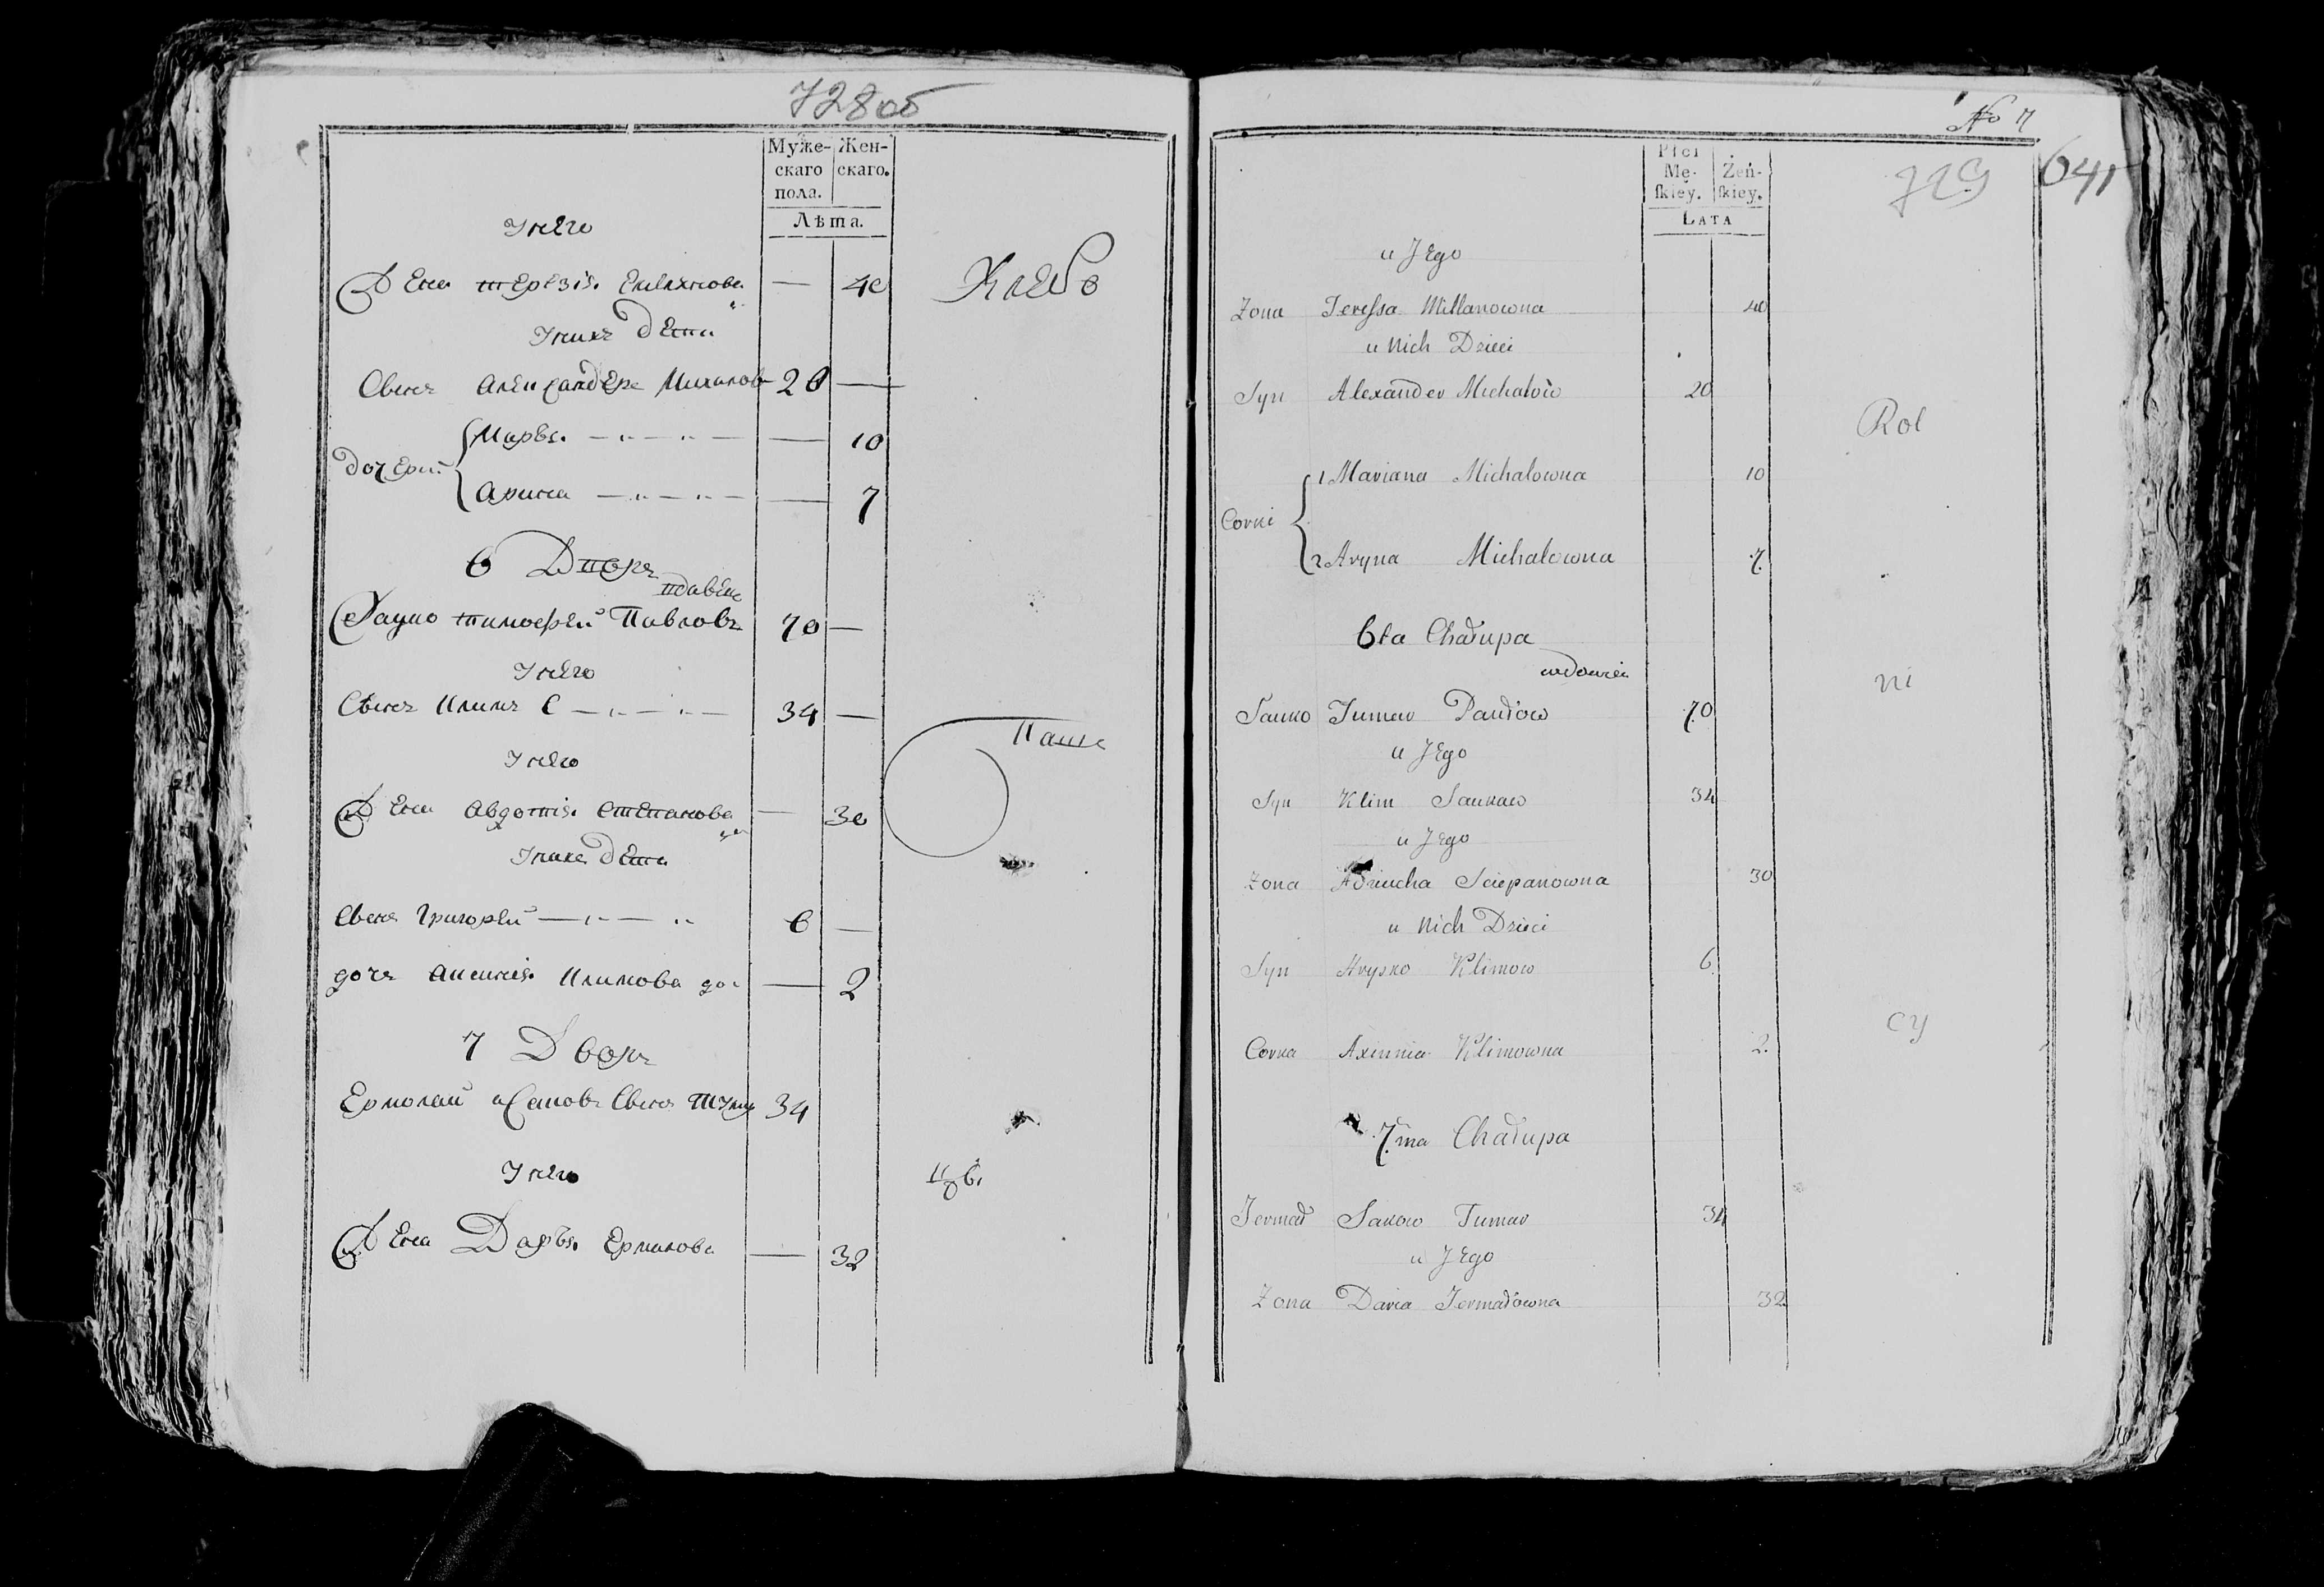 728об
Муже-
скаго
пола.
Жен-
скаго.
Лѣта.
Унего
Жена 40
Хлебо
Унихъ дети
Сынъ Александръ Михалов 20 —
дочери Марья — 10
Арина — 7
6 Дворъ
вдавец
Сауко тимофей Павловъ 70 —
Унего
Сынъ Климъ С 34 —
Паше
Унего
Жена Авдотия Степанова — 30
Унихъ дети
Сынъ Григорей — 6 —
дочь Аксиния Климова до: — 2
7 Дворъ
Ермолай Сынъ 34
Унего
Жена Дарья Ермолова — 32
No 7
729
641
Płci
Mę-
ſkiey.
Żeń-
ſkiey.
LATA
u Jego
Zona Teressa 40
u Nich Dzieci
Syn Alexander Michałow 20
Rol
Corki 1 Mariana Michałowna 10
2 Aryna Michałowna 7.
6ta Chałupa
wdowiec
ni
Sauko Tumar Pawłow 70
u Jego
Syn Klim Saukow 34
u Jego
Zona Sciepanowna 30
u Nich Dzieci
Syn Hrysko Klimow 6.
cy
Corka Axinnia Klimowna 2.
7.ma Chałupa
Jermał Sakow Tumar 34
u Jego
Zona Daria Jermałowna 32